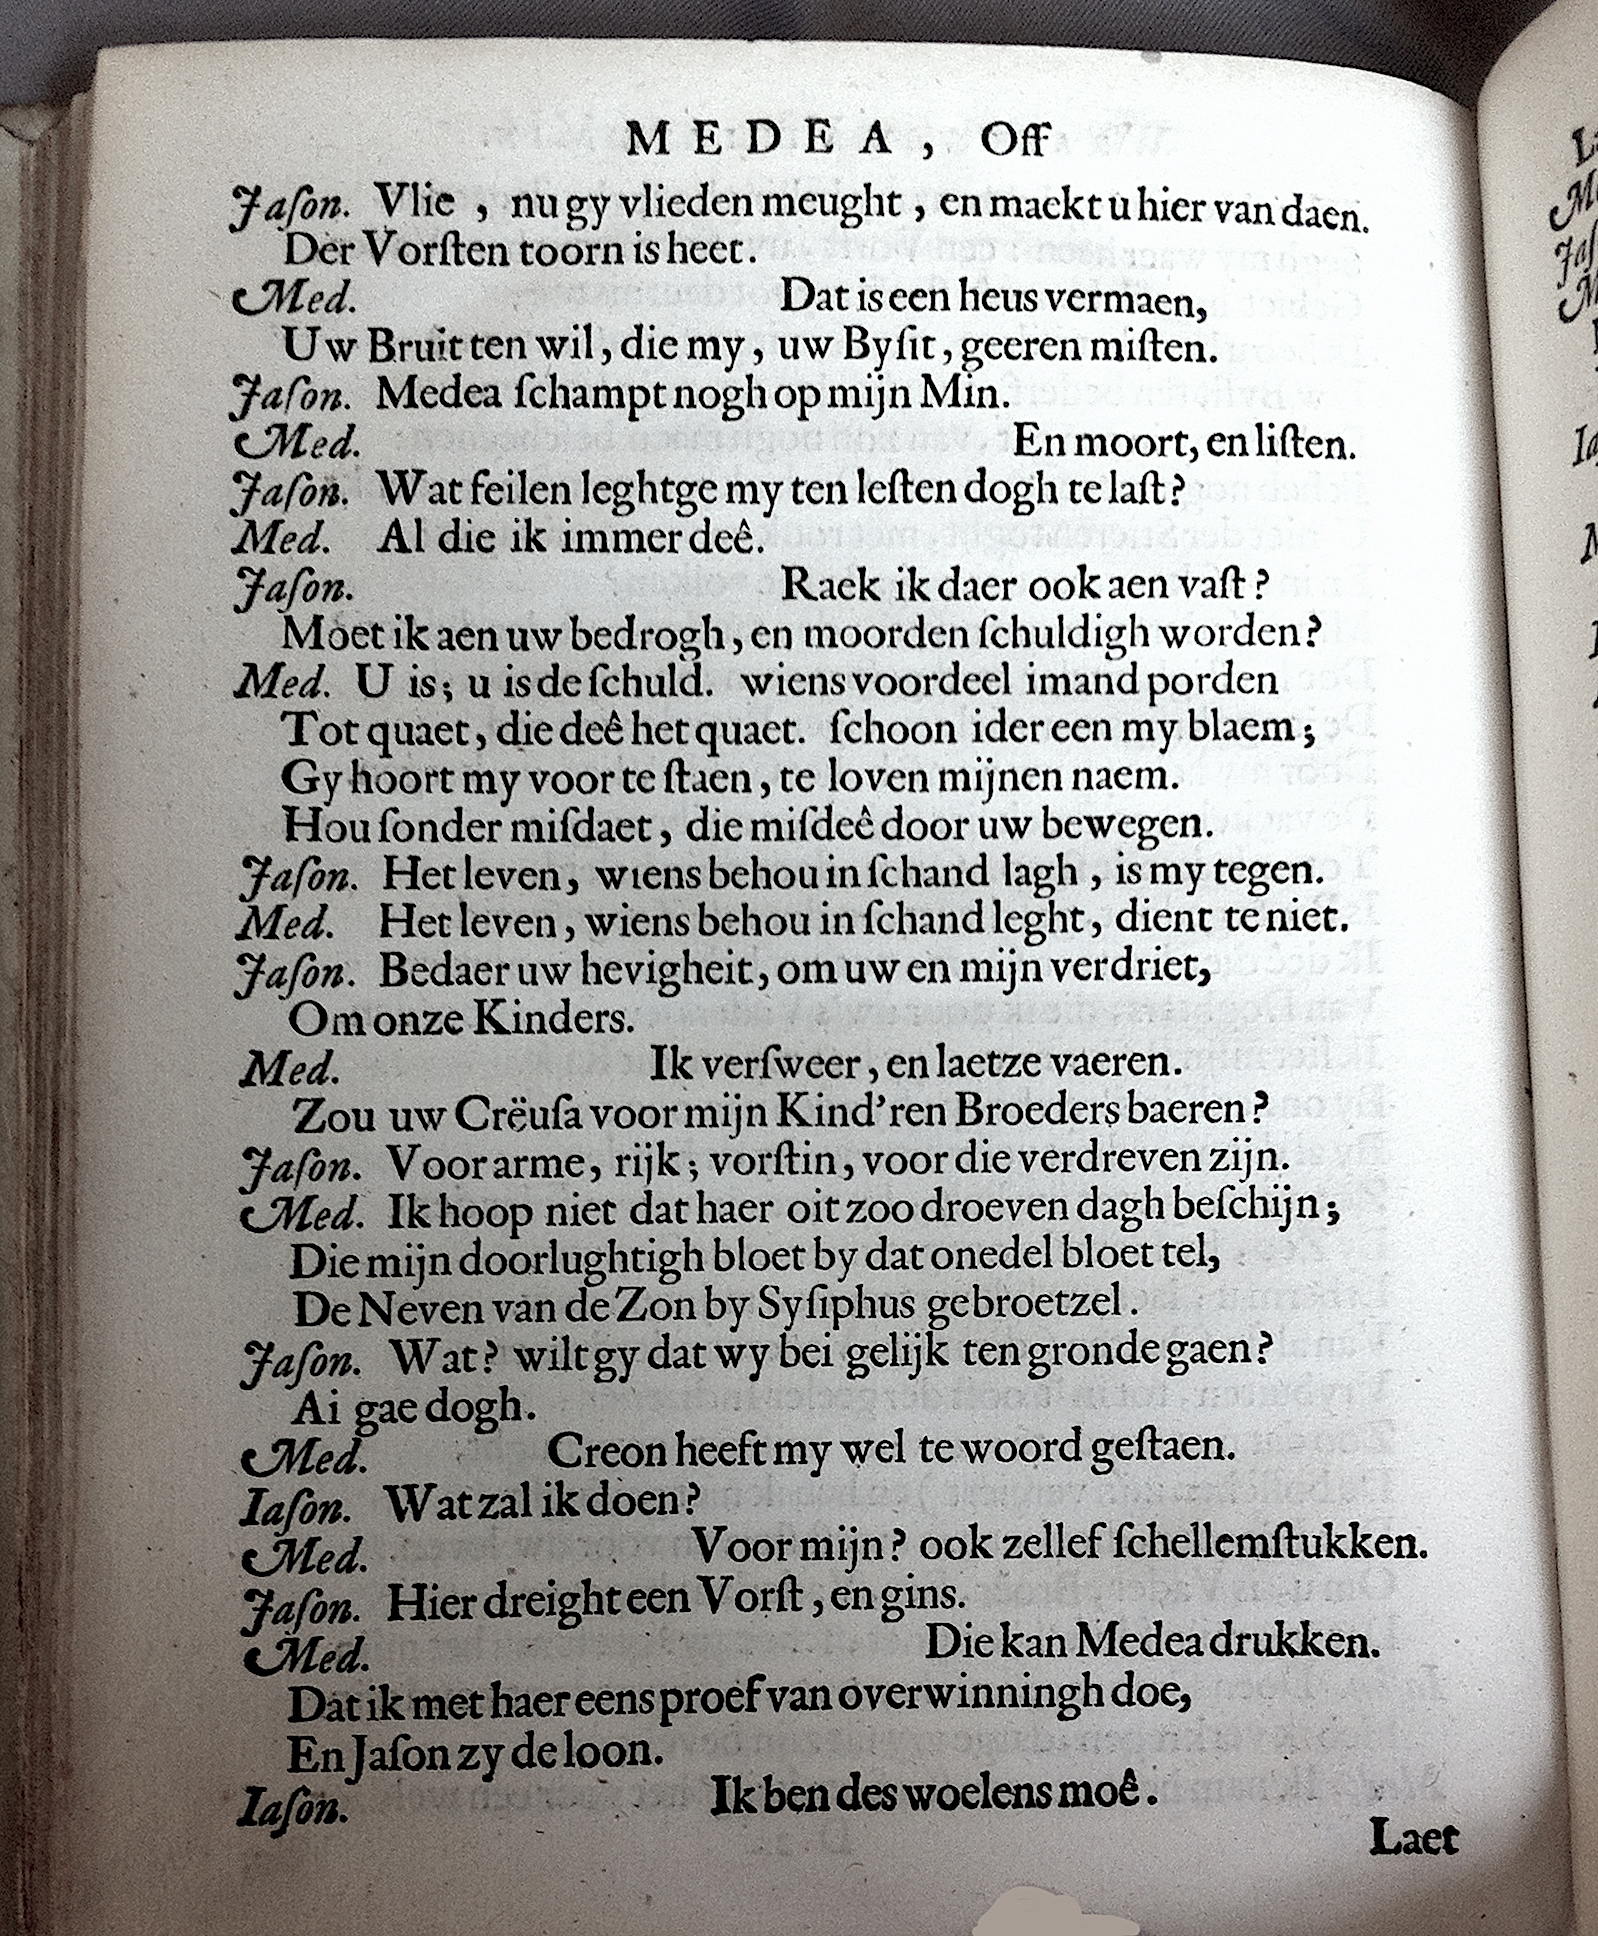 MEDEA, Off
Jaſon. Vlie, nu gy vlieden meught, en maekt u hier van daen.
Der Vorſten toorn is heet.
Med. Dat is een heus vermaen,
Uw Bruit ten wil, die my, uw Byſit, geeren miſten.
Jaſon. Medea ſchampt nogh op mijn Min.
Med. En moort, en liſten.
Jaſon. Wat feilen leghtge my ten leſten dogh te laſt?
Med. Al die ik immer deê.
Jaſon. Raek ik daer ook aen vaſt?
Moet ik aen uw bedrogh, en moorden ſchuldigh worden?
Med. U is; u is de ſchuld. wiens voordeel imand porden
Tot quaet, die deê het quaet. ſchoon ider een my blaem;
Gy hoort my voor te ſtaen, te loven mijnen naem.
Hou ſonder miſdaet, die miſdeê door uw bewegen.
Jaſon. Het leven, wiens behou in ſchand lagh, is my tegen.
Med. Het leven, wiens behou in ſchand leght, dient te niet.
Jaſon. Bedaer uw hevigheit, om uw en mijn verdriet,
Om onze Kinders.
Med. Ik verſweer, en laetze vaeren.
Zou uw Crëuſa voor mijn Kind'ren Broeders baeren?
Jaſon. Voor arme, rijk; vorſtin, voor die verdreven zijn.
Med. Ik hoop niet dat haer oit zoo droeven dagh beſchijn;
Die mijn doorlughtigh bloet by dat onedel bloet tel,
De Neven van de Zon by Syſiphus gebroetzel.
Jaſon. Wat? wilt gy dat wy bei gelijk ten gronde gaen?
Ai gae dogh.
Med. Creon heeft my wel te woord geſtaen.
Iaſon. Wat zal ik doen?
Med. Voor mijn? ook zellef ſchellemſtukken.
Jaſon. Hier dreight een Vorſt, en gins.
Med. Die kan Medea drukken.
Dat ik met haer eens proef van overwinningh doe,
En Jaſon zy de loon.
Iaſon. Ik ben des woelens moê.
Laet